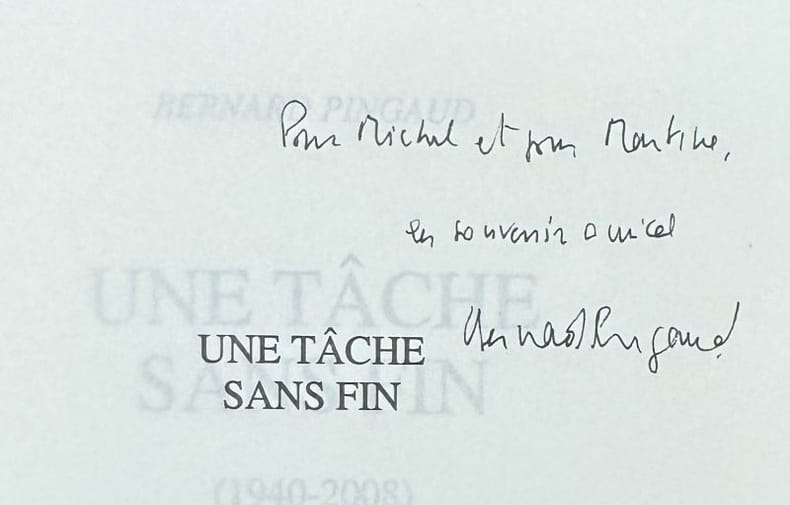 BERNARD PINGAUD
Pour Michel et pour Martine,
en souvenir amical
Bernard Pingaud
UNE TÂCHE
SANS FIN
UNE TÂCHE
SANS FIN
(1940-2008)